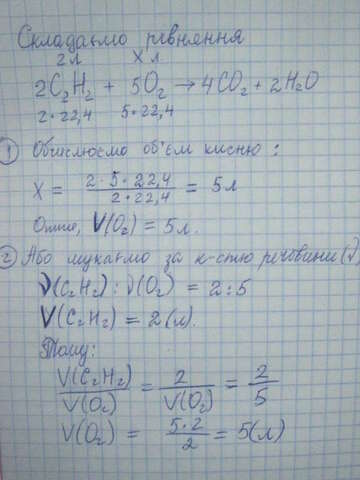 Складаємо рівняння
2л х л
2C₂H₂ + 5O₂ → 4CO₂ + 2H₂O
2·22,4 5·22,4
① Обчислюємо об'єм кисню:
X = (2·5·22,4)/(2·22,4) = 5л
Отже, V(O₂) = 5л.
② Або шукаємо за к-стю речовини (ν)
ν(C₂H₂) : ν(O₂) = 2:5
V(C₂H₂) = 2(л).
Тому:
V(C₂H₂)/V(O₂) = 2/V(O₂) = 2/5
V(O₂) = (5·2)/2 = 5(л)